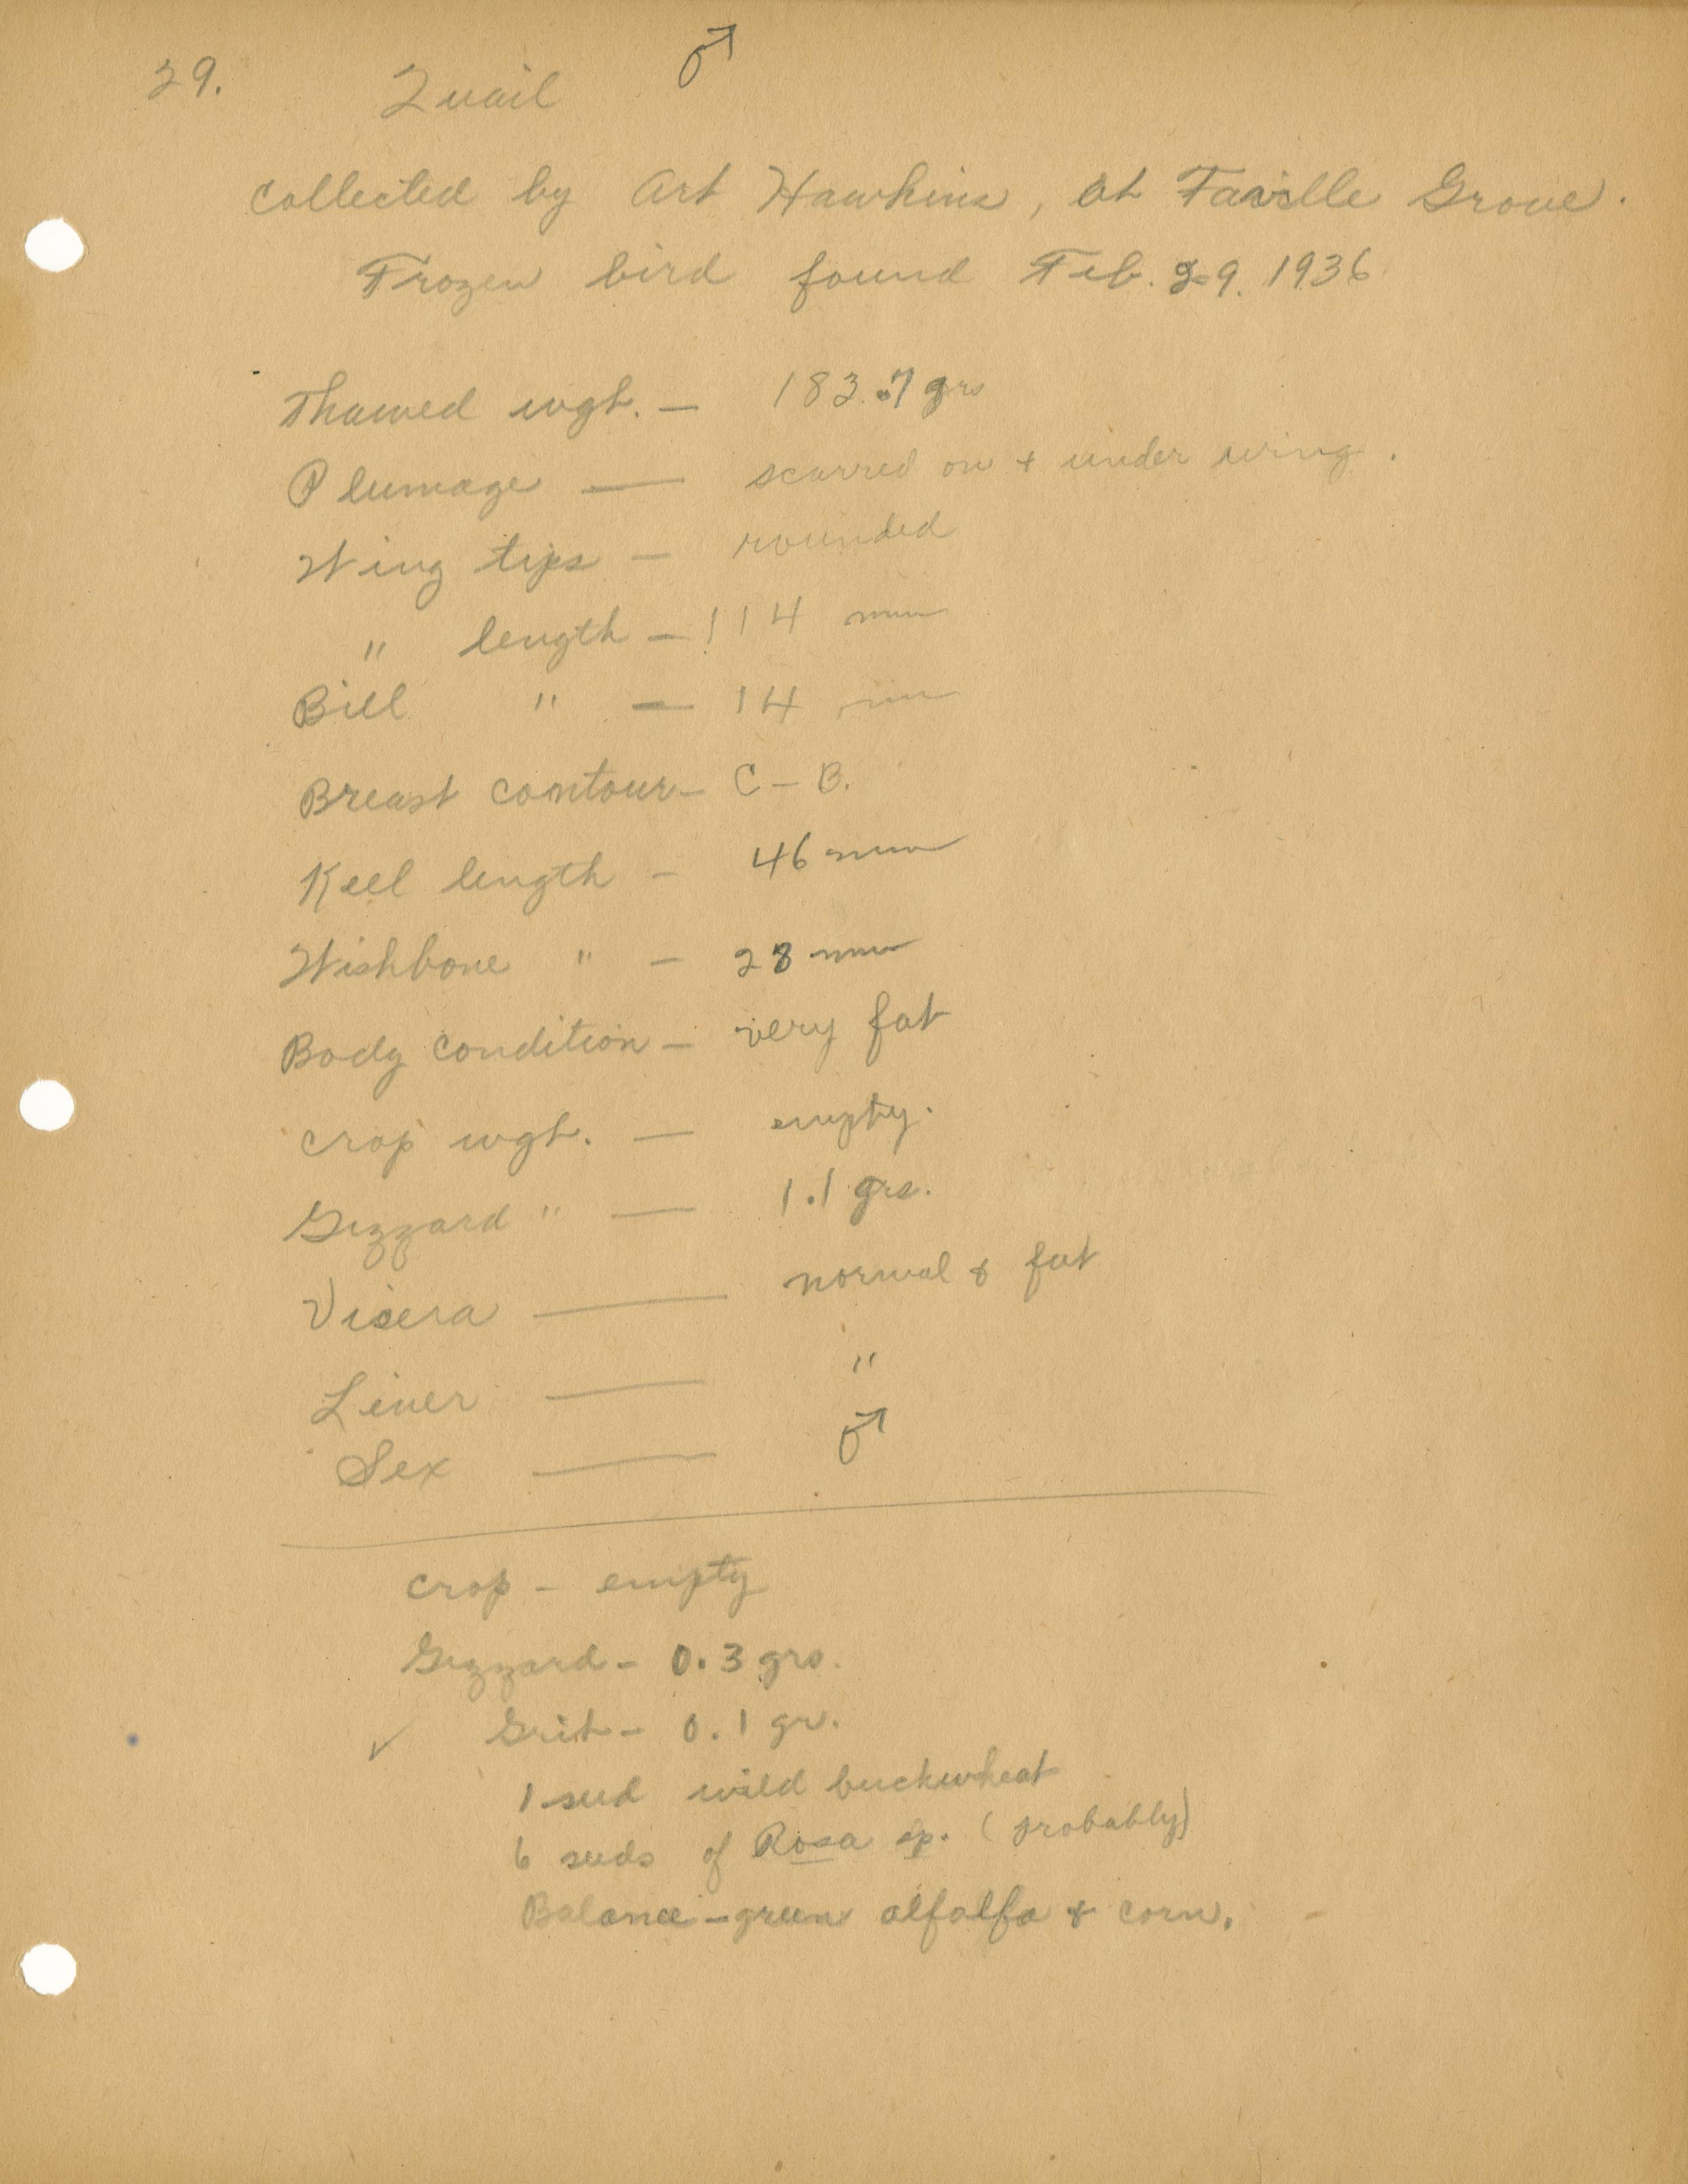 29. Quail ♂
collected by Art Hawkins, at Faville Grove.
Frozen bird found Feb. 29. 1936
Thawed wgt. — 183.7 grs
Plumage — scarred on & under wing.
Wing tips — rounded
" length — 114 mm
Bill " — 14 mm
Breast contour — C - B.
Keel length — 46 mm
Wishbone " — 28 mm
Body condition — very fat
crop wgt. — empty.
Gizzard " — 1.1 grs.
Visera — normal & fat
Liver — "
Sex — ♂
crop — empty
Gizzard — 0.3 grs.
✓ Grit — 0.1 gr.
1 seed wild buckwheat
6 seeds of Rosa sp. (probably)
Balance — green alfalfa & corn. -